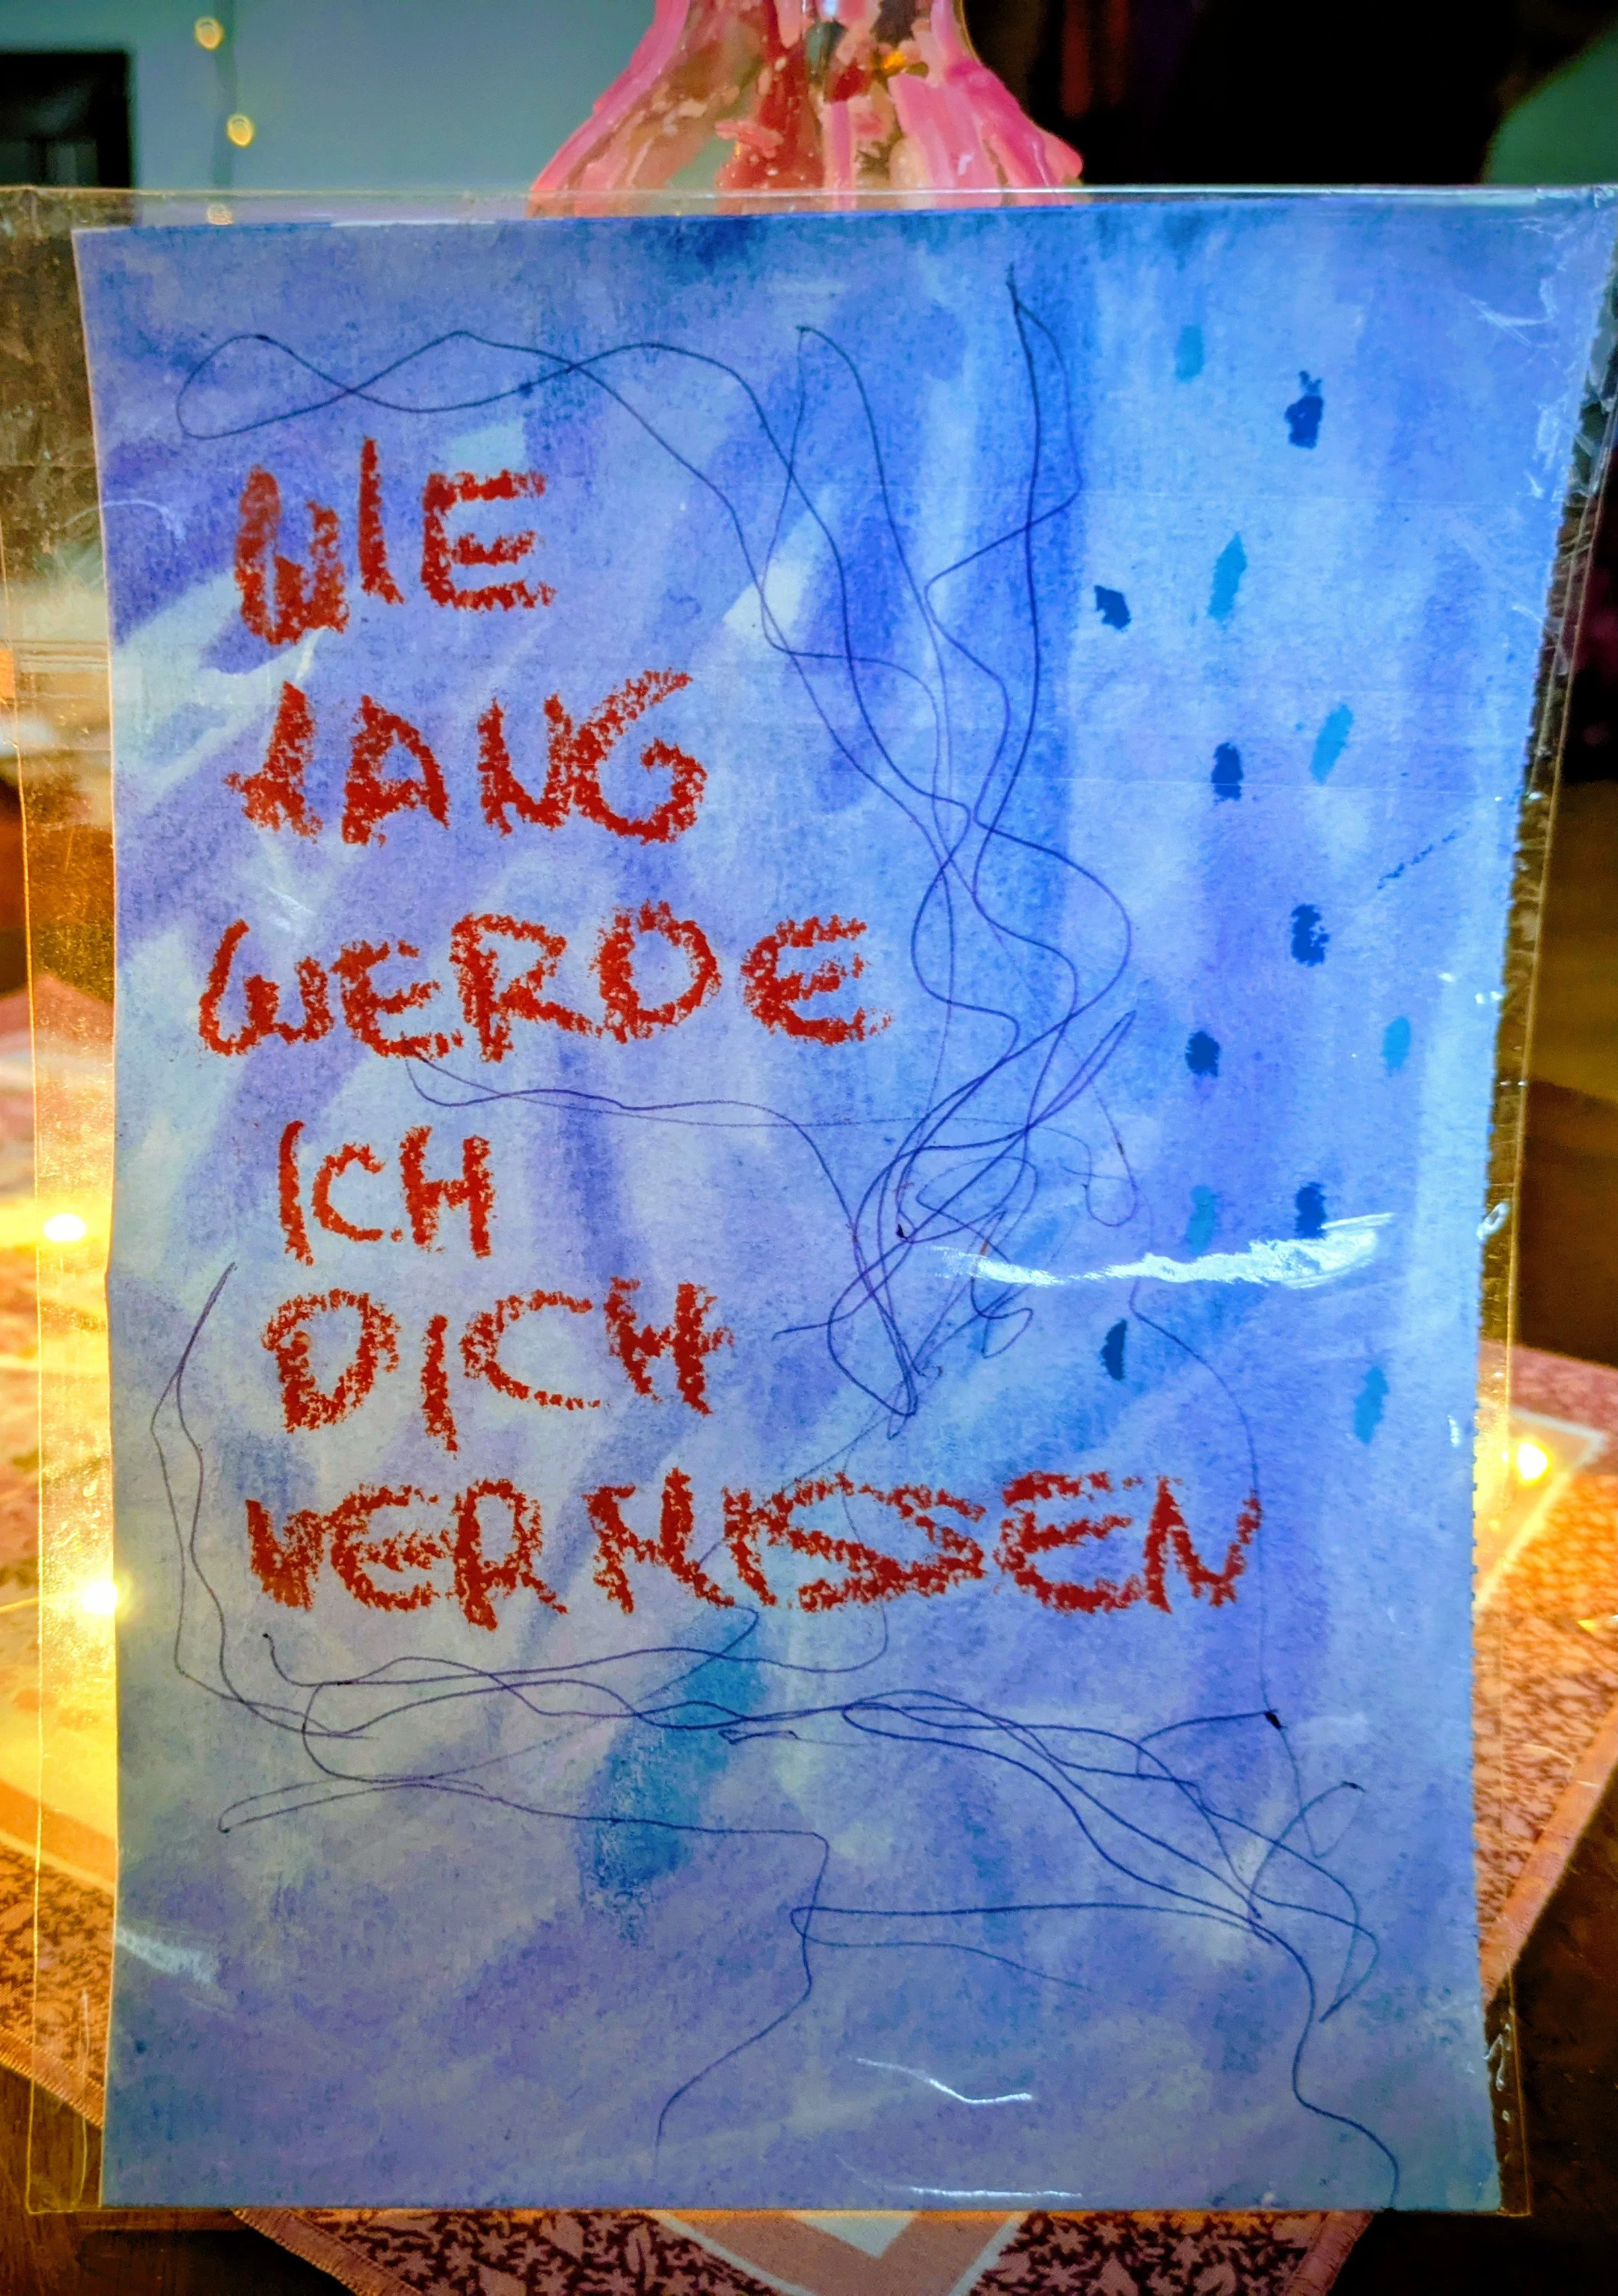 WIE
LANG
WERDE
ICH
DICH
VERMISSEN